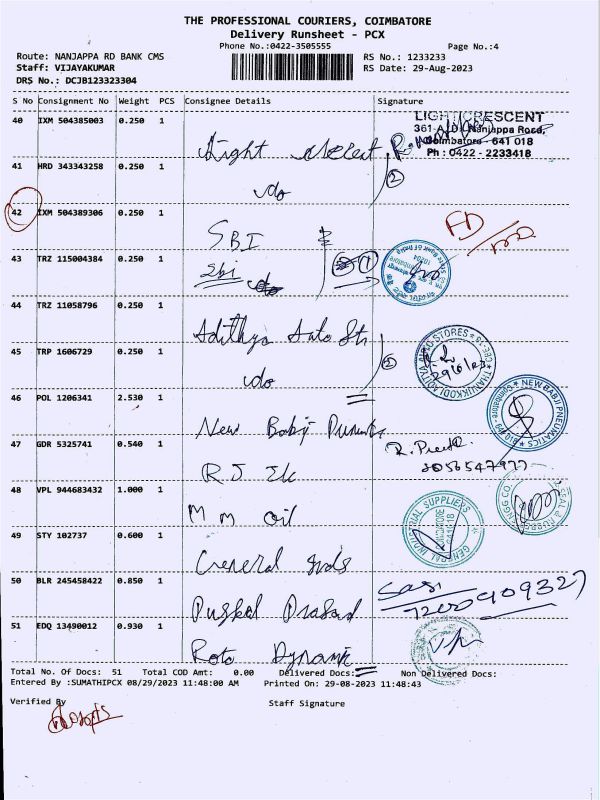 THE PROFESSIONAL COURIERS, COIMBATORE
Delivery Runsheet - PCX
Phone No.:0422-3505555 Page No.:4
Route: NANJAPPA RD BANK CMS RS No.: 1233233
Staff: VIJAYAKUMAR RS Date: 29-Aug-2023
DRS No.: DCJB123323304
S No Consignment No Weight PCS Consignee Details Signature
40 IXM 504385003 0.250 1
LIGHT CRESCENT
361-A, D Nanjappa Road,
Coimbatore - 641 018
Ph : 0422 - 2233418
Light
41 HRD 343343258 0.250 1
2
do
42 IXM 504389306 0.250 1
SBI
43 TRZ 115004384 0.250 1
Sbi do 1
44 TRZ 11058796 0.250 1
Adithya Auto Str
45 TRP 1606729 0.250 1
do 2
STORES
46 POL 1206341 2.530 1
New Babji
NEW BABJI PNEUMATICS
47 GDR 5325741 0.540 1
R.
R J
48 VPL 944683432 1.000 1
M m oil
GENERAL INDUSTRIAL SUPPLIERS
49 STY 102737 0.600 1
General Inds
50 BLR 245458422 0.850 1
Sasi
Prasad
51 EDQ 13490012 0.930 1
Roto Dynamic
Total No. Of Docs: 51 Total COD Amt: 0.00 Delivered Docs: Non Delivered Docs:
Entered By :SUMATHIPCX 08/29/2023 11:48:00 AM Printed On: 29-08-2023 11:48:43
Verified By Staff Signature